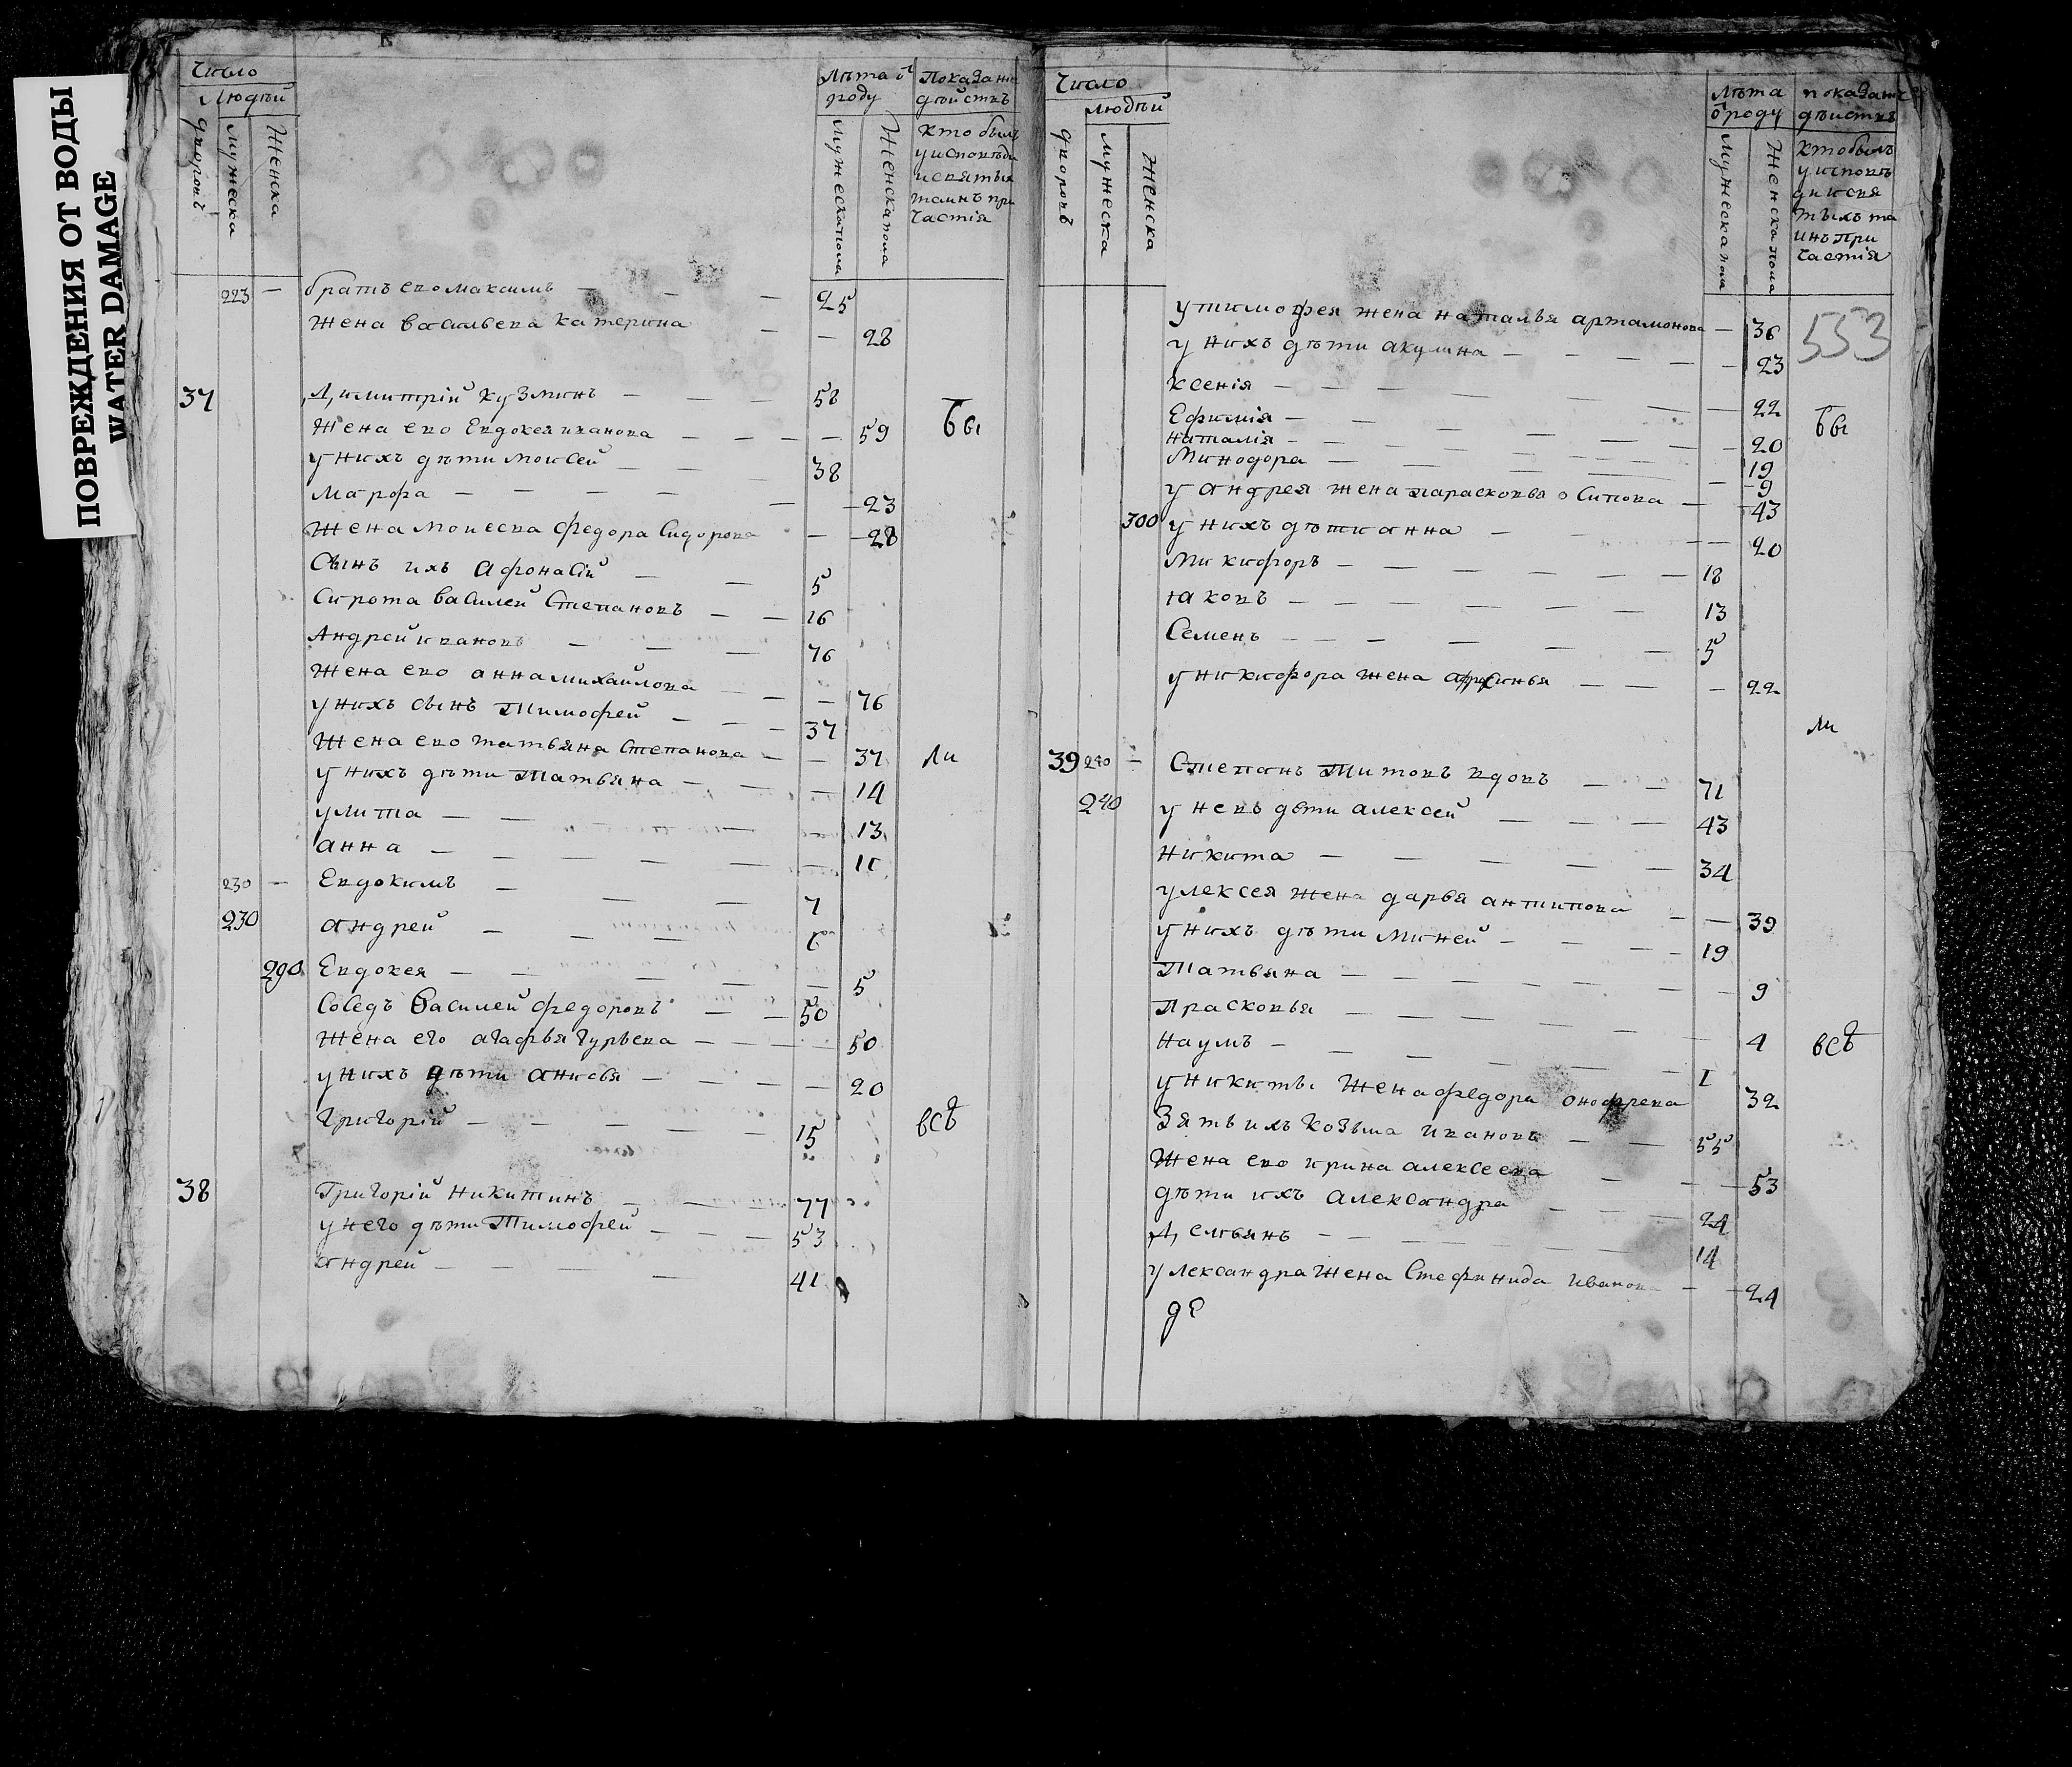 ПОВРЕЖДЕНИЯ ОТ ВОДЫ
WATER DAMAGE
Число
Людѣй
дворовъ
мужеска
Женска
Лѣта ѿ
роду
мужеска пола
Женска пола
Показание
дѣйствъ
кто былъ
у исповѣди
и святыхъ
таинъ при
частія
223 — братъ ево максимъ — 25
жена васильева катерина — 28
37 Димитрій кузминъ — 58
жена ево Евдокея иванова — 59
у нихъ дѣти моисей — 38
марфа — 23
жена моисева федора Сидорова — 28
Сынъ ихъ афонасій — 5
Сирота василей Степановъ — 16
Андрей ивановъ — 76
жена ево анна михайлова — 76
у нихъ сынъ Тимофей — 37
жена ево татьяна Степанова — 37
у нихъ дѣти Татьяна — 14
улита — 13
анна — 11
230 — Евдокимъ — 7
230 андрей — 6
290 Евдокея — 5
Соседъ Василей федоровъ — 50
жена его агафья гурьева — 50
у нихъ дѣти анисья — 20
Григорій — 15
38 Григорій никитинъ — 77
у него дѣти Тимофей — 53
андрей — 41
бы
ли
всѣ
Число
людѣй
дворовъ
мужеска
женска
Лѣта
ѿ роду
мужеска пола
женска пола
показание
дѣиствъ
кто былъ
у исповѣ
ди и свя
тыхъ та
инъ при
частія
553
у тимофея жена наталья артамонова — 36
у нихъ дѣти акулина — 23
ксенія — 22
Ефимія — 20
наталія — 19
Минодора — 9
у андрея жена парасковья осипова — 43
300 у нихъ дѣти анна — 20
Микифоръ — 18
іаковъ — 13
Семенъ — 5
у никифора жена афросинья — 22
39 240 — Степанъ Титовъ вдовъ — 71
240 у невъ дѣти алексей — 43
никита — 34
улексея жена дарья антипова — 39
у нихъ дѣти миней — 19
Татьяна — 9
Прасковья — 4
наумъ — 1
у никиты жена федора онофрева — 32
Зять ихъ козьма ивановъ — 55
жена ево ирина алексеева — 53
дѣти ихъ александра — 24
Демьянъ — 14
улександра жена Стефанида иванова — 24
де
бы
ли
всѣ